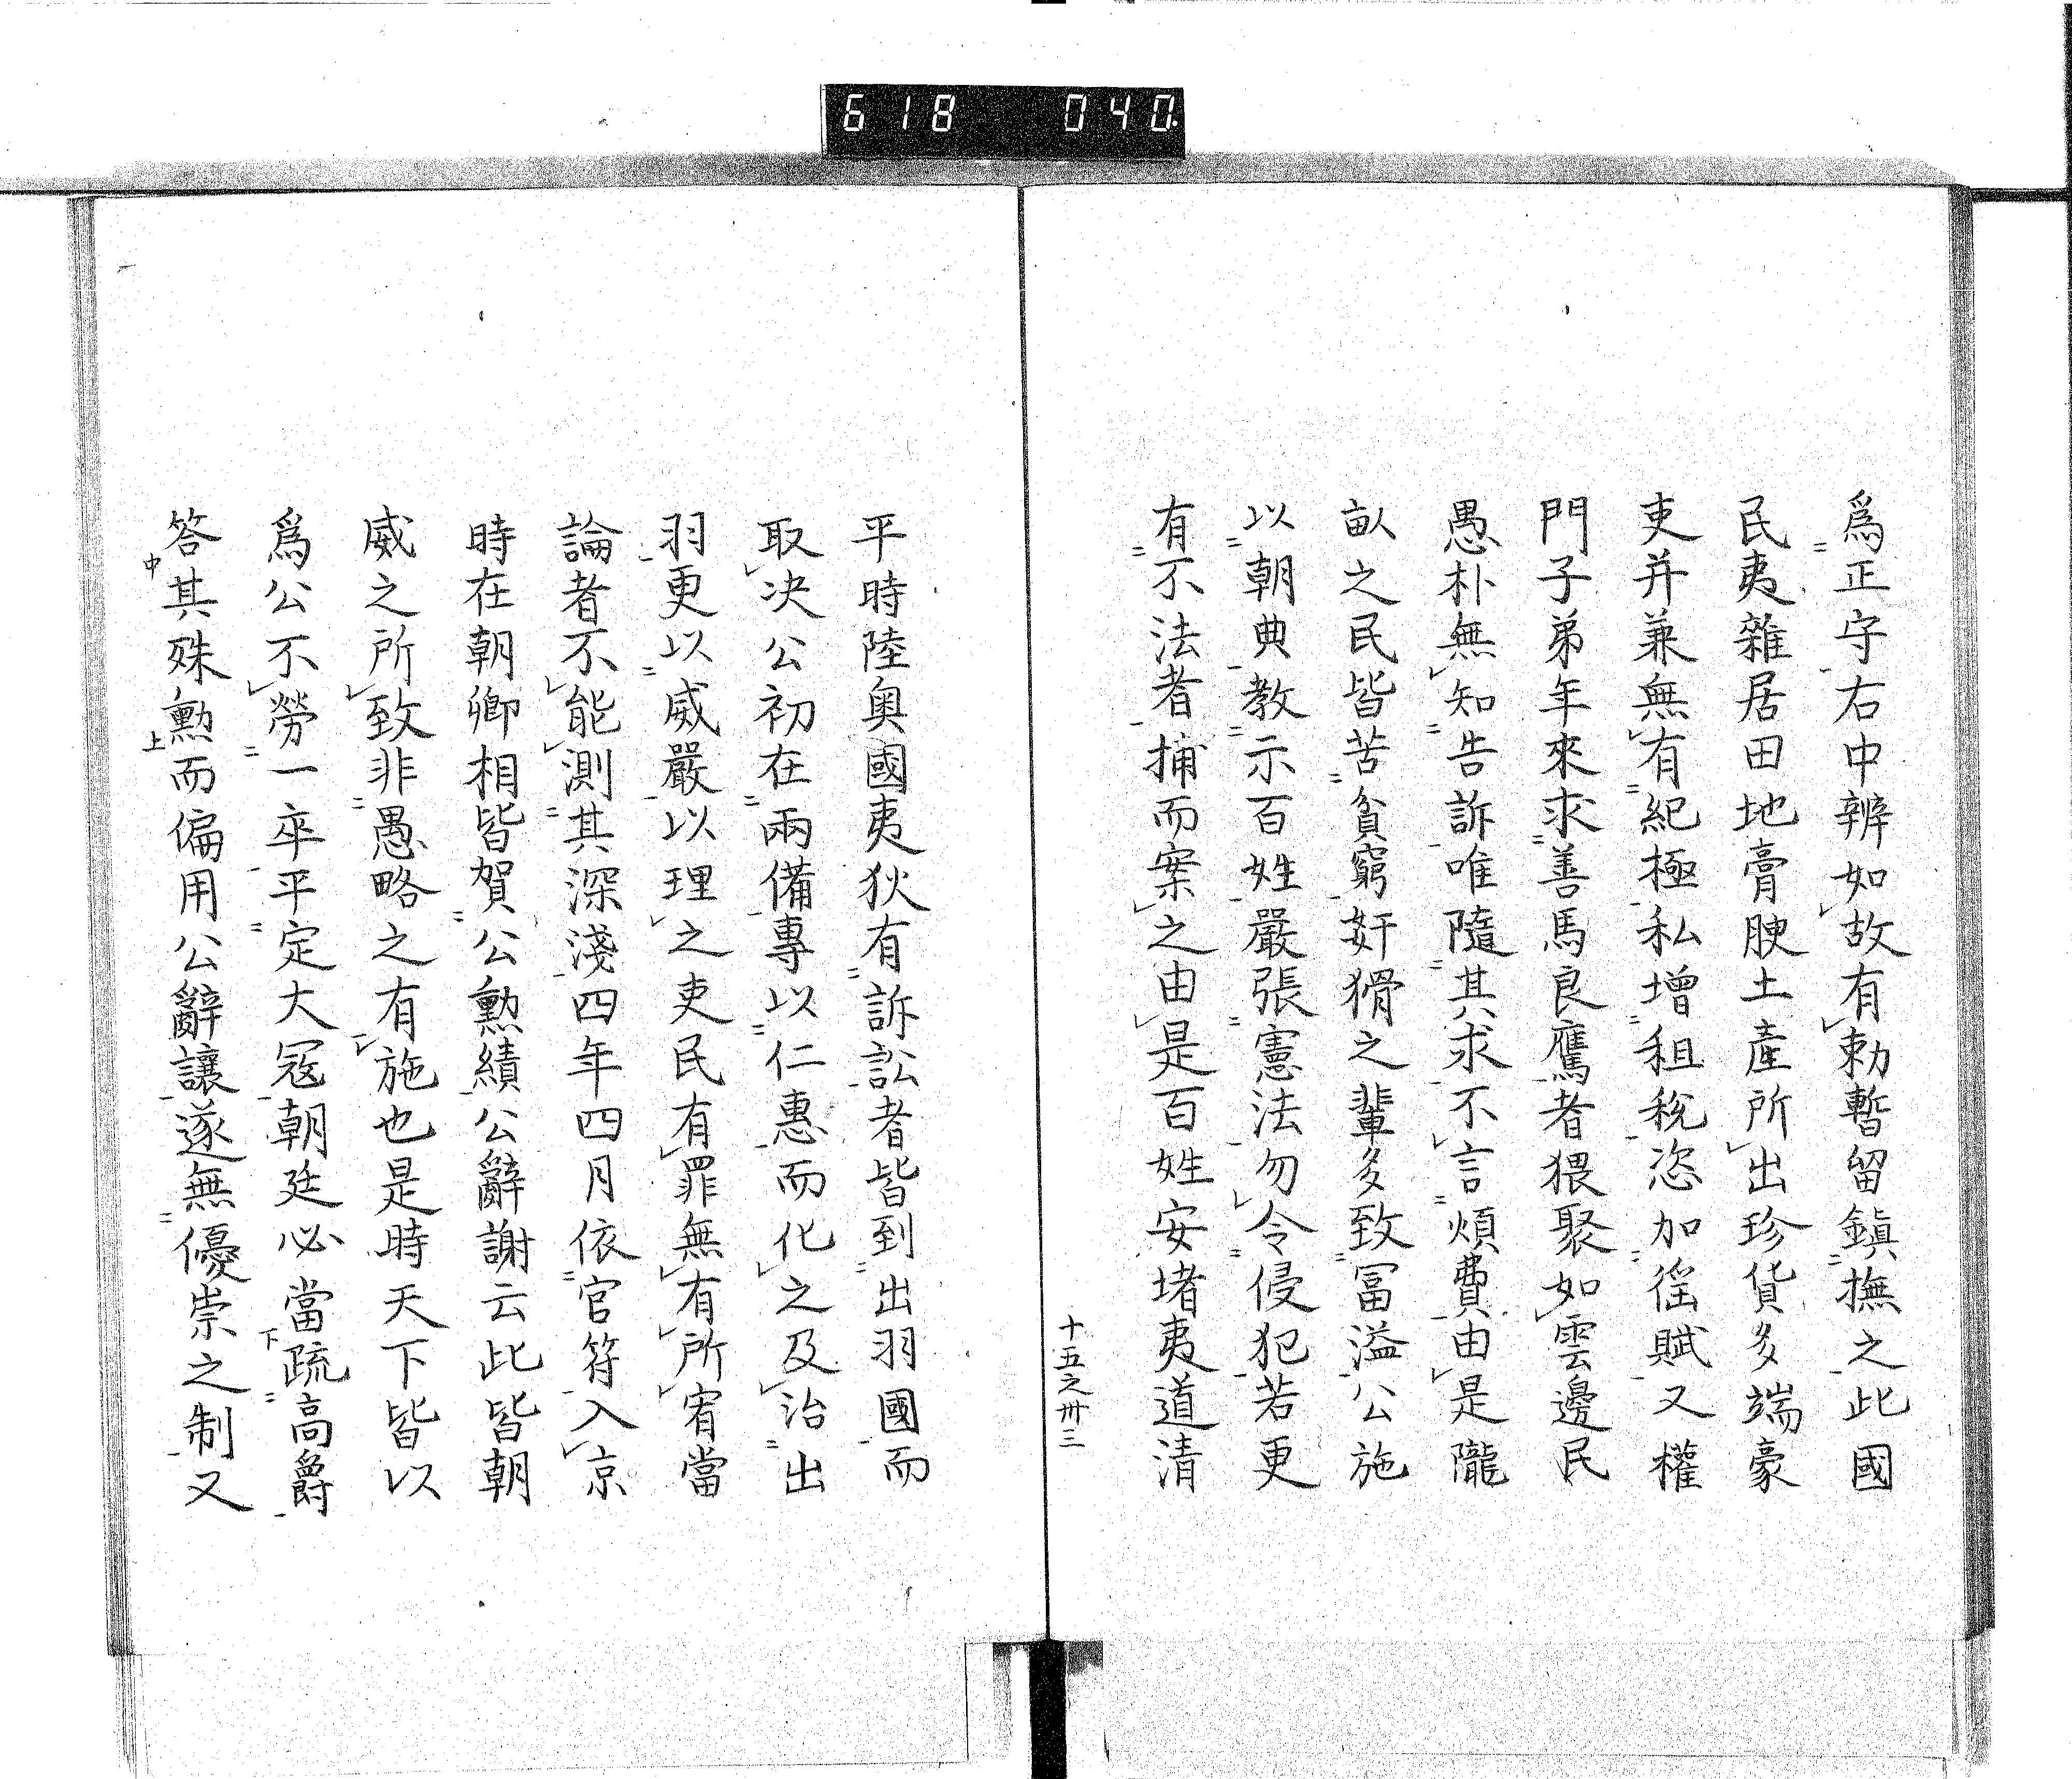 618 040.
爲正守右中辨如故有勅暫留鎭撫之此國
民夷雜居田地膏腴土產所出珍貨多端豪
吏并兼無有紀極私增租稅恣加徭賦又權
門子弟年來求善馬良鷹者猥聚如雲邊民
愚朴無知告訴唯隨其求不言煩費由是隴
畝之民皆苦貧窮奸猾之輩多致冨溢公施
以朝典教示百姓嚴張憲法勿令侵犯若更
有不法者捕而案之由是百姓安堵夷道清
十五之卅三
平時陸奥國夷狄有訴訟者皆到出羽國而
取决公初在兩備專以仁惠而化之及治出
羽更以威嚴以理之吏民有罪無有所宥當
論者不能測其深淺四年四月依官符入京
時在朝卿相皆賀公勳績公辭謝云此皆朝
威之所致非愚略之有施也是時天下皆以
爲公不勞一卒平定大冦朝廷必當疏高爵
答其殊勳而偏用公辭讓遂無優崇之制又